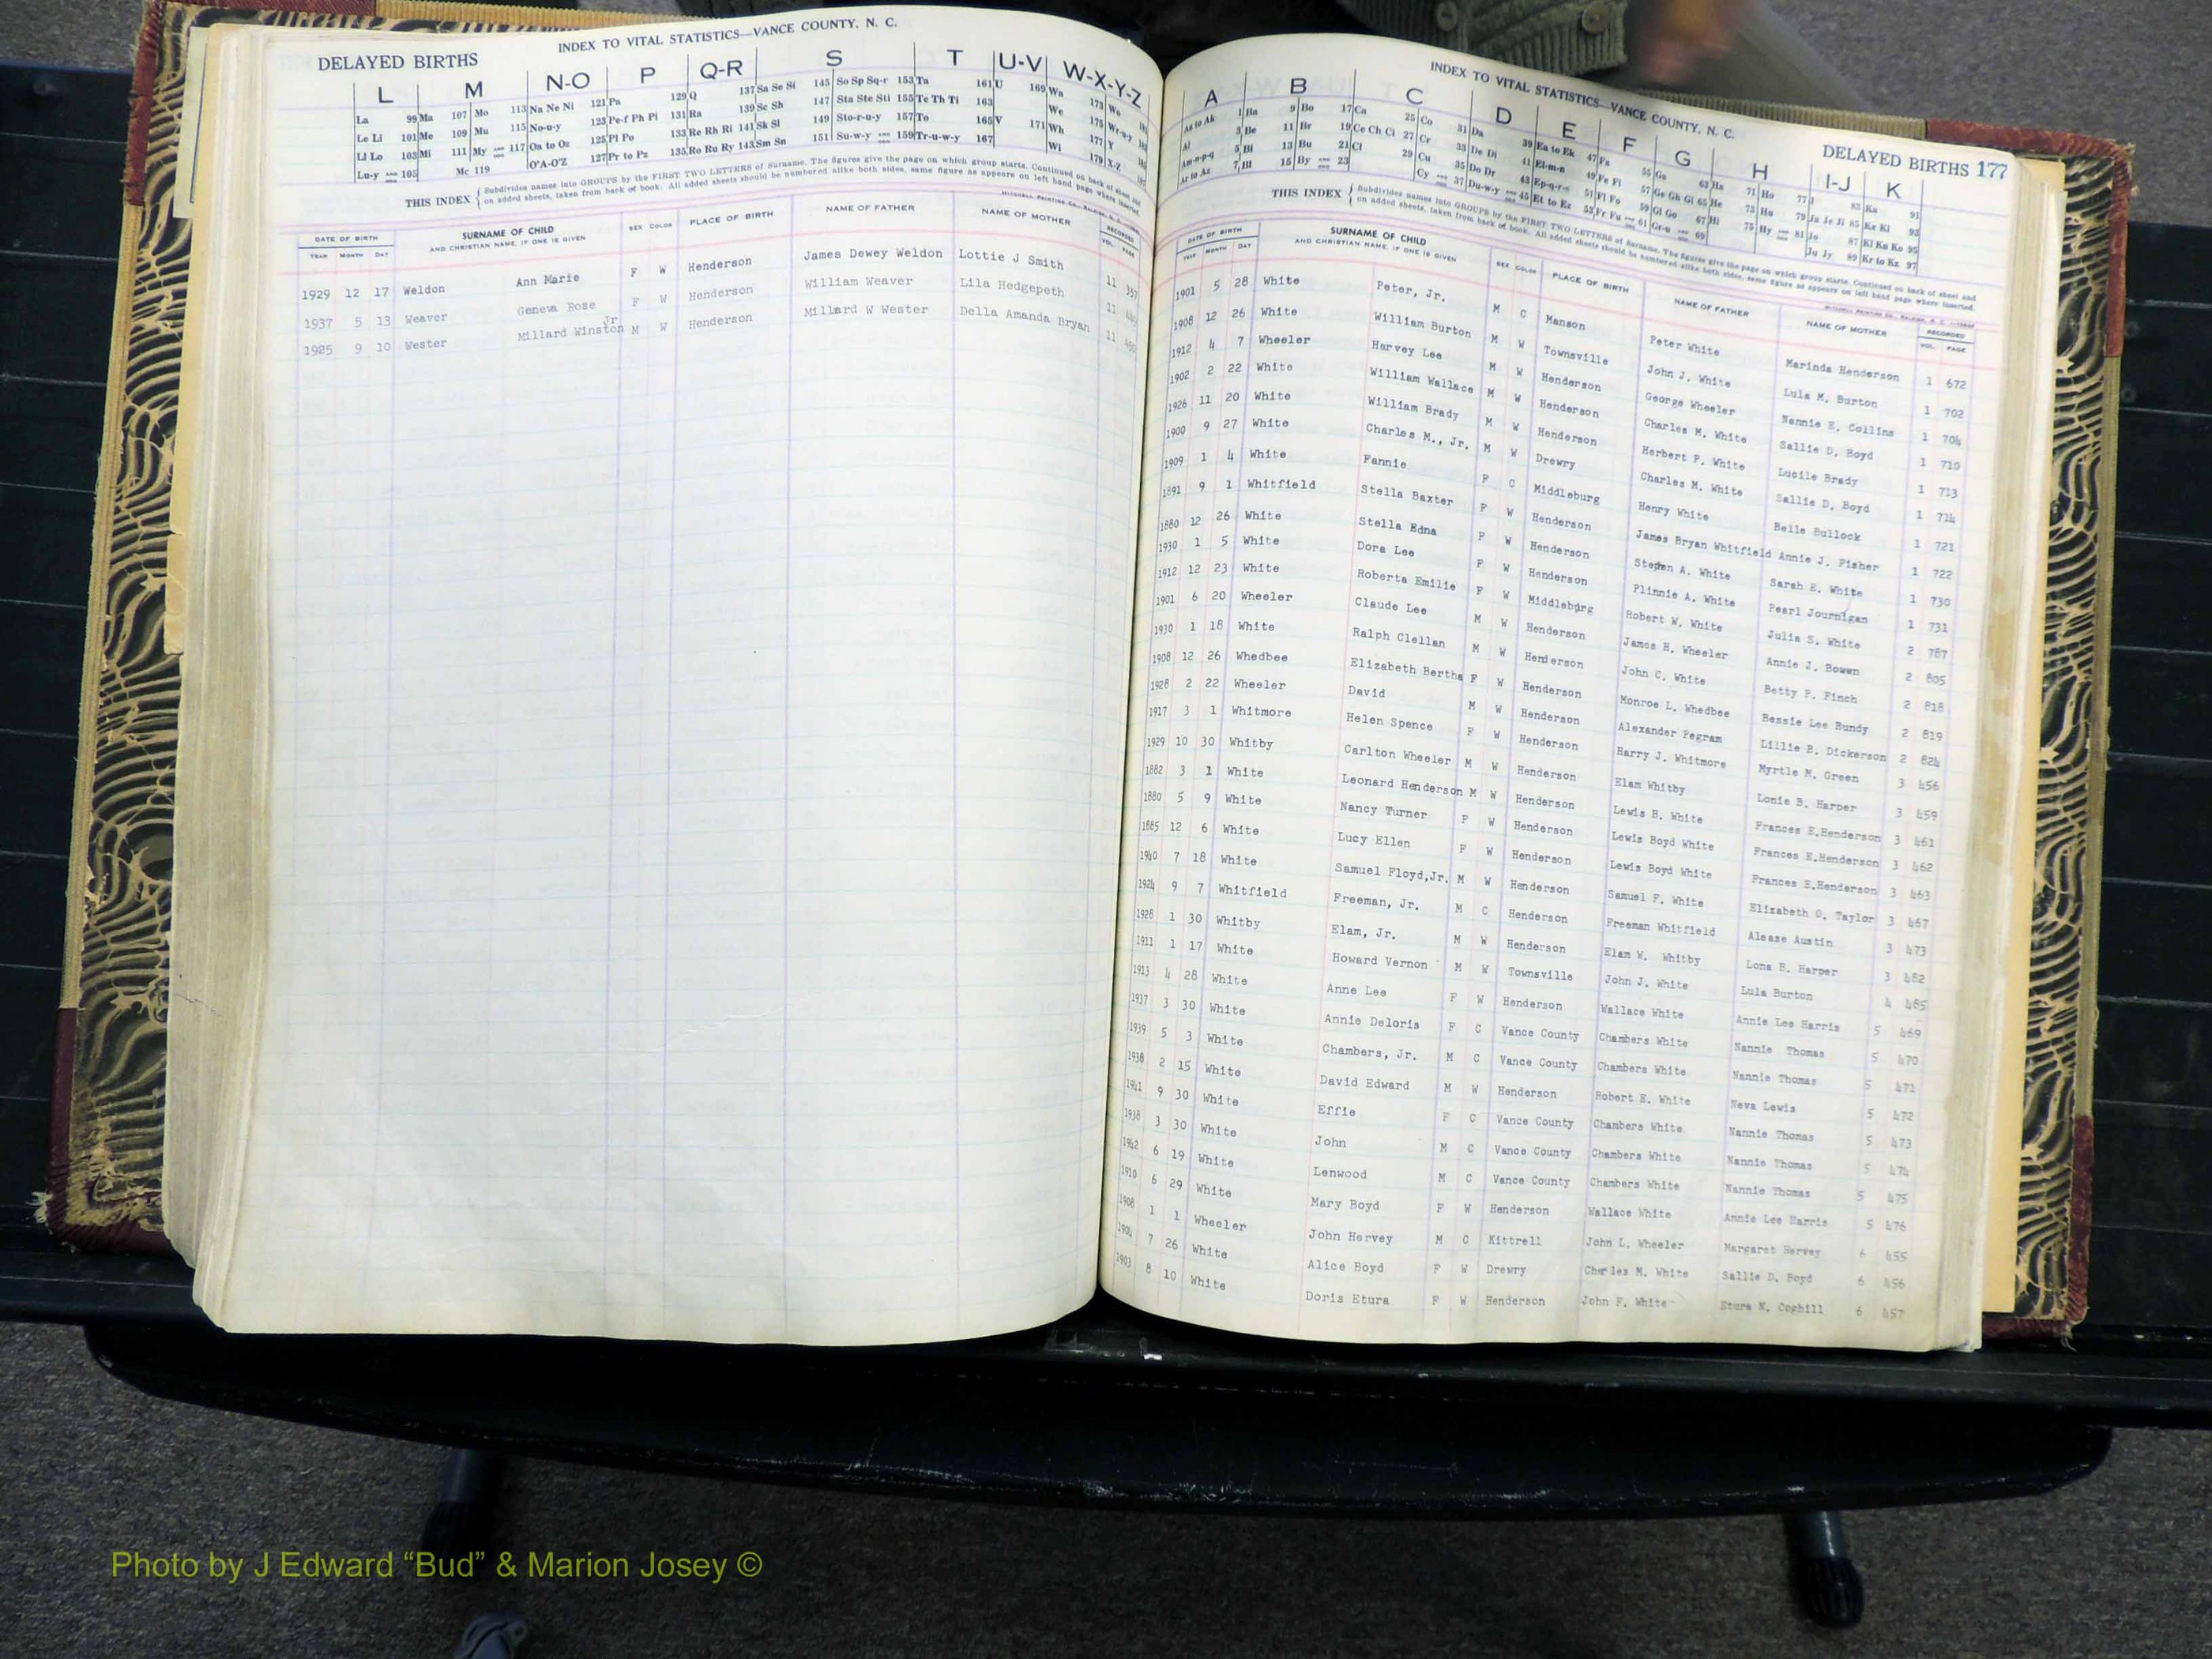 INDEX TO VITAL STATISTICS—VANCE COUNTY, N. C.
DELAYED BIRTHS
L M N-O P Q-R S T U-V W-X-Y-Z
La 99 Ma 107 Mo 113 Na Ne Ni 121 Pa 129 Q 137 Sa Se Si 145 So Sp Sq-r 153 Ta 161 U 169 Wa 173 Wo
Le Li 101 Me 109 Mu 115 No-u-y 123 Pe-f Ph Pi 131 Ra 139 Sc Sh 147 Sta Ste Sti 155 Te Th Ti 163 We 175 Wr-u-y
Ll Lo 103 Mi 111 My AND 117 Oa to Oz 125 Pl Po 133 Re Rh Ri 141 Sk Sl 149 Sto-r-u-y 157 To 165 V 171 Wh 177 Y
Lu-y AND 105 Mc 119 O'A-O'Z 127 Pr to Pz 135 Ro Ru Ry 143 Sm Sn 151 Su-w-y AND 159 Tr-u-w-y 167 Wi 179 X-Z
THIS INDEX { Subdivides names into GROUPS by the FIRST TWO LETTERS of Surname. The figures give the page on which group starts. Continued on back of sheet and
on added sheets, taken from back of book. All added sheets should be numbered alike both sides, same figure as appears on left hand page where inserted.
DATE OF BIRTH SURNAME OF CHILD AND CHRISTIAN NAME, IF ONE IS GIVEN SEX COLOR PLACE OF BIRTH NAME OF FATHER NAME OF MOTHER RECORDED
YEAR MONTH DAY VOL. PAGE
1929 12 17 Weldon Ann Marie F W Henderson James Dewey Weldon Lottie J Smith 11 357
1937 5 13 Weaver Geneva Rose F W Henderson William Weaver Lila Hedgepeth 11
1925 9 10 Wester Millard Winston Jr M W Henderson Millard W Wester Della Amanda Bryan 11
INDEX TO VITAL STATISTICS—VANCE COUNTY, N. C.
DELAYED BIRTHS 177
A B C D E F G H I-J K
THIS INDEX { Subdivides names into GROUPS by the FIRST TWO LETTERS of Surname. The figures give the page on which group starts. Continued on back of sheet and
on added sheets, taken from back of book. All added sheets should be numbered alike both sides, same figure as appears on left hand page where inserted.
DATE OF BIRTH SURNAME OF CHILD AND CHRISTIAN NAME, IF ONE IS GIVEN SEX COLOR PLACE OF BIRTH NAME OF FATHER NAME OF MOTHER RECORDED
YEAR MONTH DAY VOL. PAGE
1901 5 28 White Peter, Jr. M C Manson Peter White Marinda Henderson 1 672
1908 12 26 White William Burton M W Townsville John J. White Lula M. Burton 1 702
1912 4 7 Wheeler Harvey Lee M W Henderson George Wheeler Nannie E. Collins 1 704
1902 2 22 White William Wallace M W Henderson Charles M. White Sallie D. Boyd 1 710
1926 11 20 White William Brady M W Henderson Herbert P. White Lucile Brady 1 713
1900 9 27 White Charles M., Jr. M W Drewry Charles M. White Sallie D. Boyd 1 714
1909 1 4 White Fannie F C Middleburg Henry White Belle Bullock 1 721
1891 9 1 Whitfield Stella Baxter F W Henderson James Bryan Whitfield Annie J. Fisher 1 722
1880 12 26 White Stella Edna F W Henderson Stephen A. White Sarah E. White 1 730
1930 1 5 White Dora Lee F W Henderson Plinnie A. White Pearl Journigan 1 731
1912 12 23 White Roberta Emilie F W Middleburg Robert W. White Julia S. White 2 787
1901 6 20 Wheeler Claude Lee M W Henderson James H. Wheeler Annie J. Bowen 2 805
1930 1 18 White Ralph Clellan M W Henderson John C. White Betty P. Finch 2 818
1908 12 26 Whedbee Elizabeth Bertha F W Henderson Monroe L. Whedbee Bessie Lee Bundy 2 819
1928 2 22 Wheeler David M W Henderson Alexander Pegram Lillie B. Dickerson 2 824
1917 3 1 Whitmore Helen Spence F W Henderson Harry J. Whitmore Myrtle M. Green 3 456
1929 10 30 Whitby Carlton Wheeler M W Henderson Elam Whitby Lonie B. Harper 3 459
1882 3 1 White Leonard Henderson M W Henderson Lewis B. White Frances E.Henderson 3 461
1880 5 9 White Nancy Turner F W Henderson Lewis Boyd White Frances E.Henderson 3 462
1885 12 6 White Lucy Ellen F W Henderson Lewis Boyd White Frances E.Henderson 3 463
1940 7 18 White Samuel Floyd,Jr. M W Henderson Samuel F. White Elizabeth O. Taylor 3 467
1924 9 7 Whitfield Freeman, Jr. M C Henderson Freeman Whitfield Alease Austin 3 473
1928 1 30 Whitby Elam, Jr. M W Henderson Elam W. Whitby Lona B. Harper 3 482
1911 1 17 White Howard Vernon M W Townsville John J. White Lula Burton 4 485
1913 4 28 White Anne Lee F W Henderson Wallace White Annie Lee Harris 5 469
1937 3 30 White Annie Deloris F C Vance County Chambers White Nannie Thomas 5 470
1939 5 3 White Chambers, Jr. M C Vance County Chambers White Nannie Thomas 5 471
1938 2 15 White David Edward M W Henderson Robert E. White Neva Lewis 5 472
1941 9 30 White Effie F C Vance County Chambers White Nannie Thomas 5 473
1938 3 30 White John M C Vance County Chambers White Nannie Thomas 5 474
1942 6 19 White Lenwood M C Vance County Chambers White Nannie Thomas 5 475
1910 6 29 White Mary Boyd F W Henderson Wallace White Annie Lee Harris 5 476
1908 1 1 Wheeler John Hervey M C Kittrell John L. Wheeler Margaret Hervey 6 455
7 26 White Alice Boyd F W Drewry Charles M. White Sallie D. Boyd 6 456
1903 8 10 White Doris Etura F W Henderson John F. White Etura N. Coghill 6 457
Photo by J Edward “Bud” & Marion Josey ©